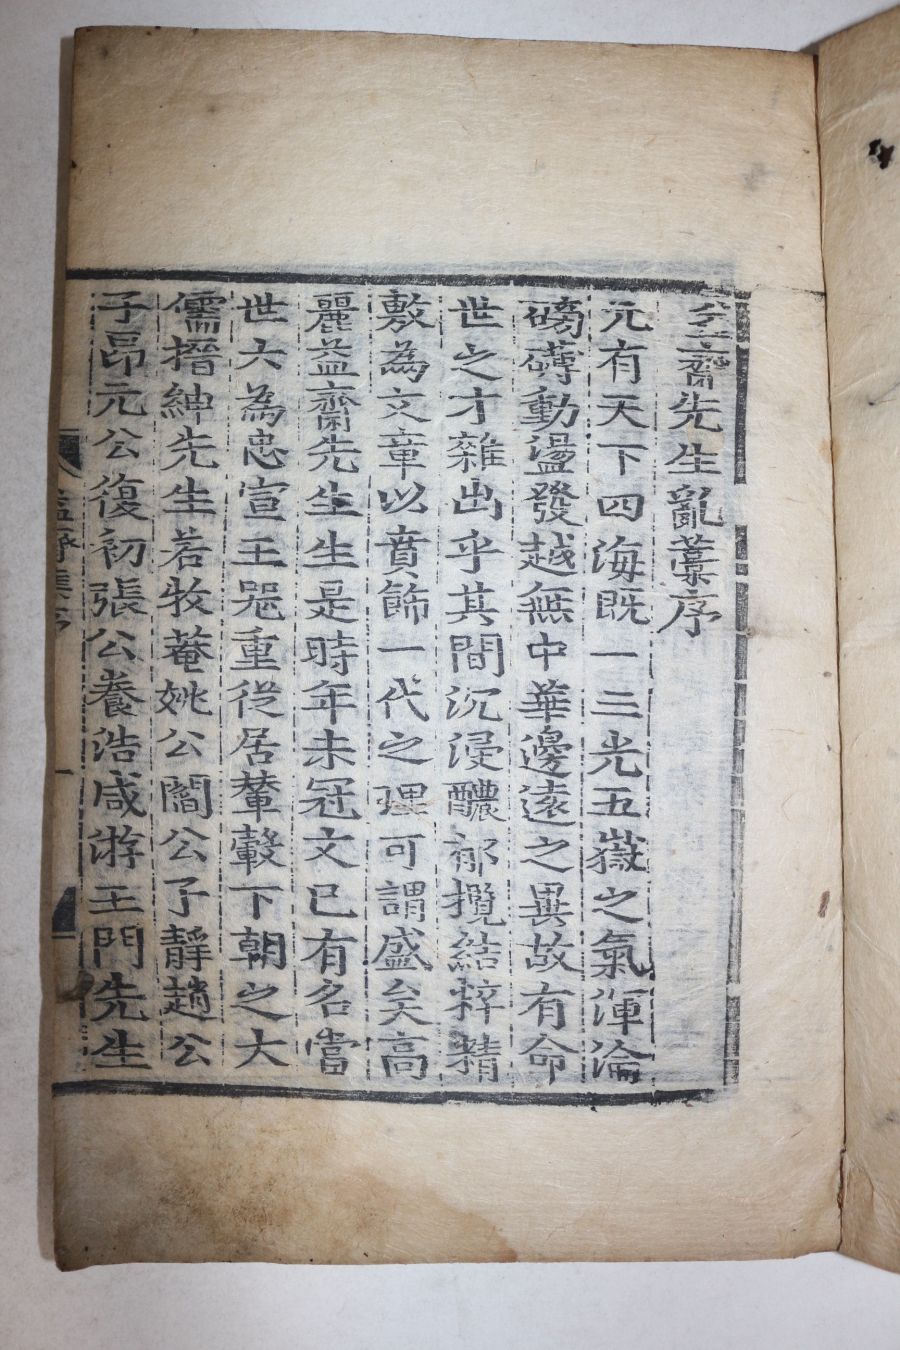 益齋先生亂藁序
元有天下四海既一三光五嶽之氣渾淪
磅礴動盪發越無中華邊遠之異故有命
世之才雜出乎其間沉浸醲郁攬結粹精
敷為文章以賁飾一代之理可謂盛矣高
麗益齋先生生是時年未冠文已有名當
世大為忠宣王器重從居輦轂下朝之大
儒搢紳先生若牧菴姚公閻公子靜趙公
子昂元公復初張公養浩咸游王門先生
益齋集序
一